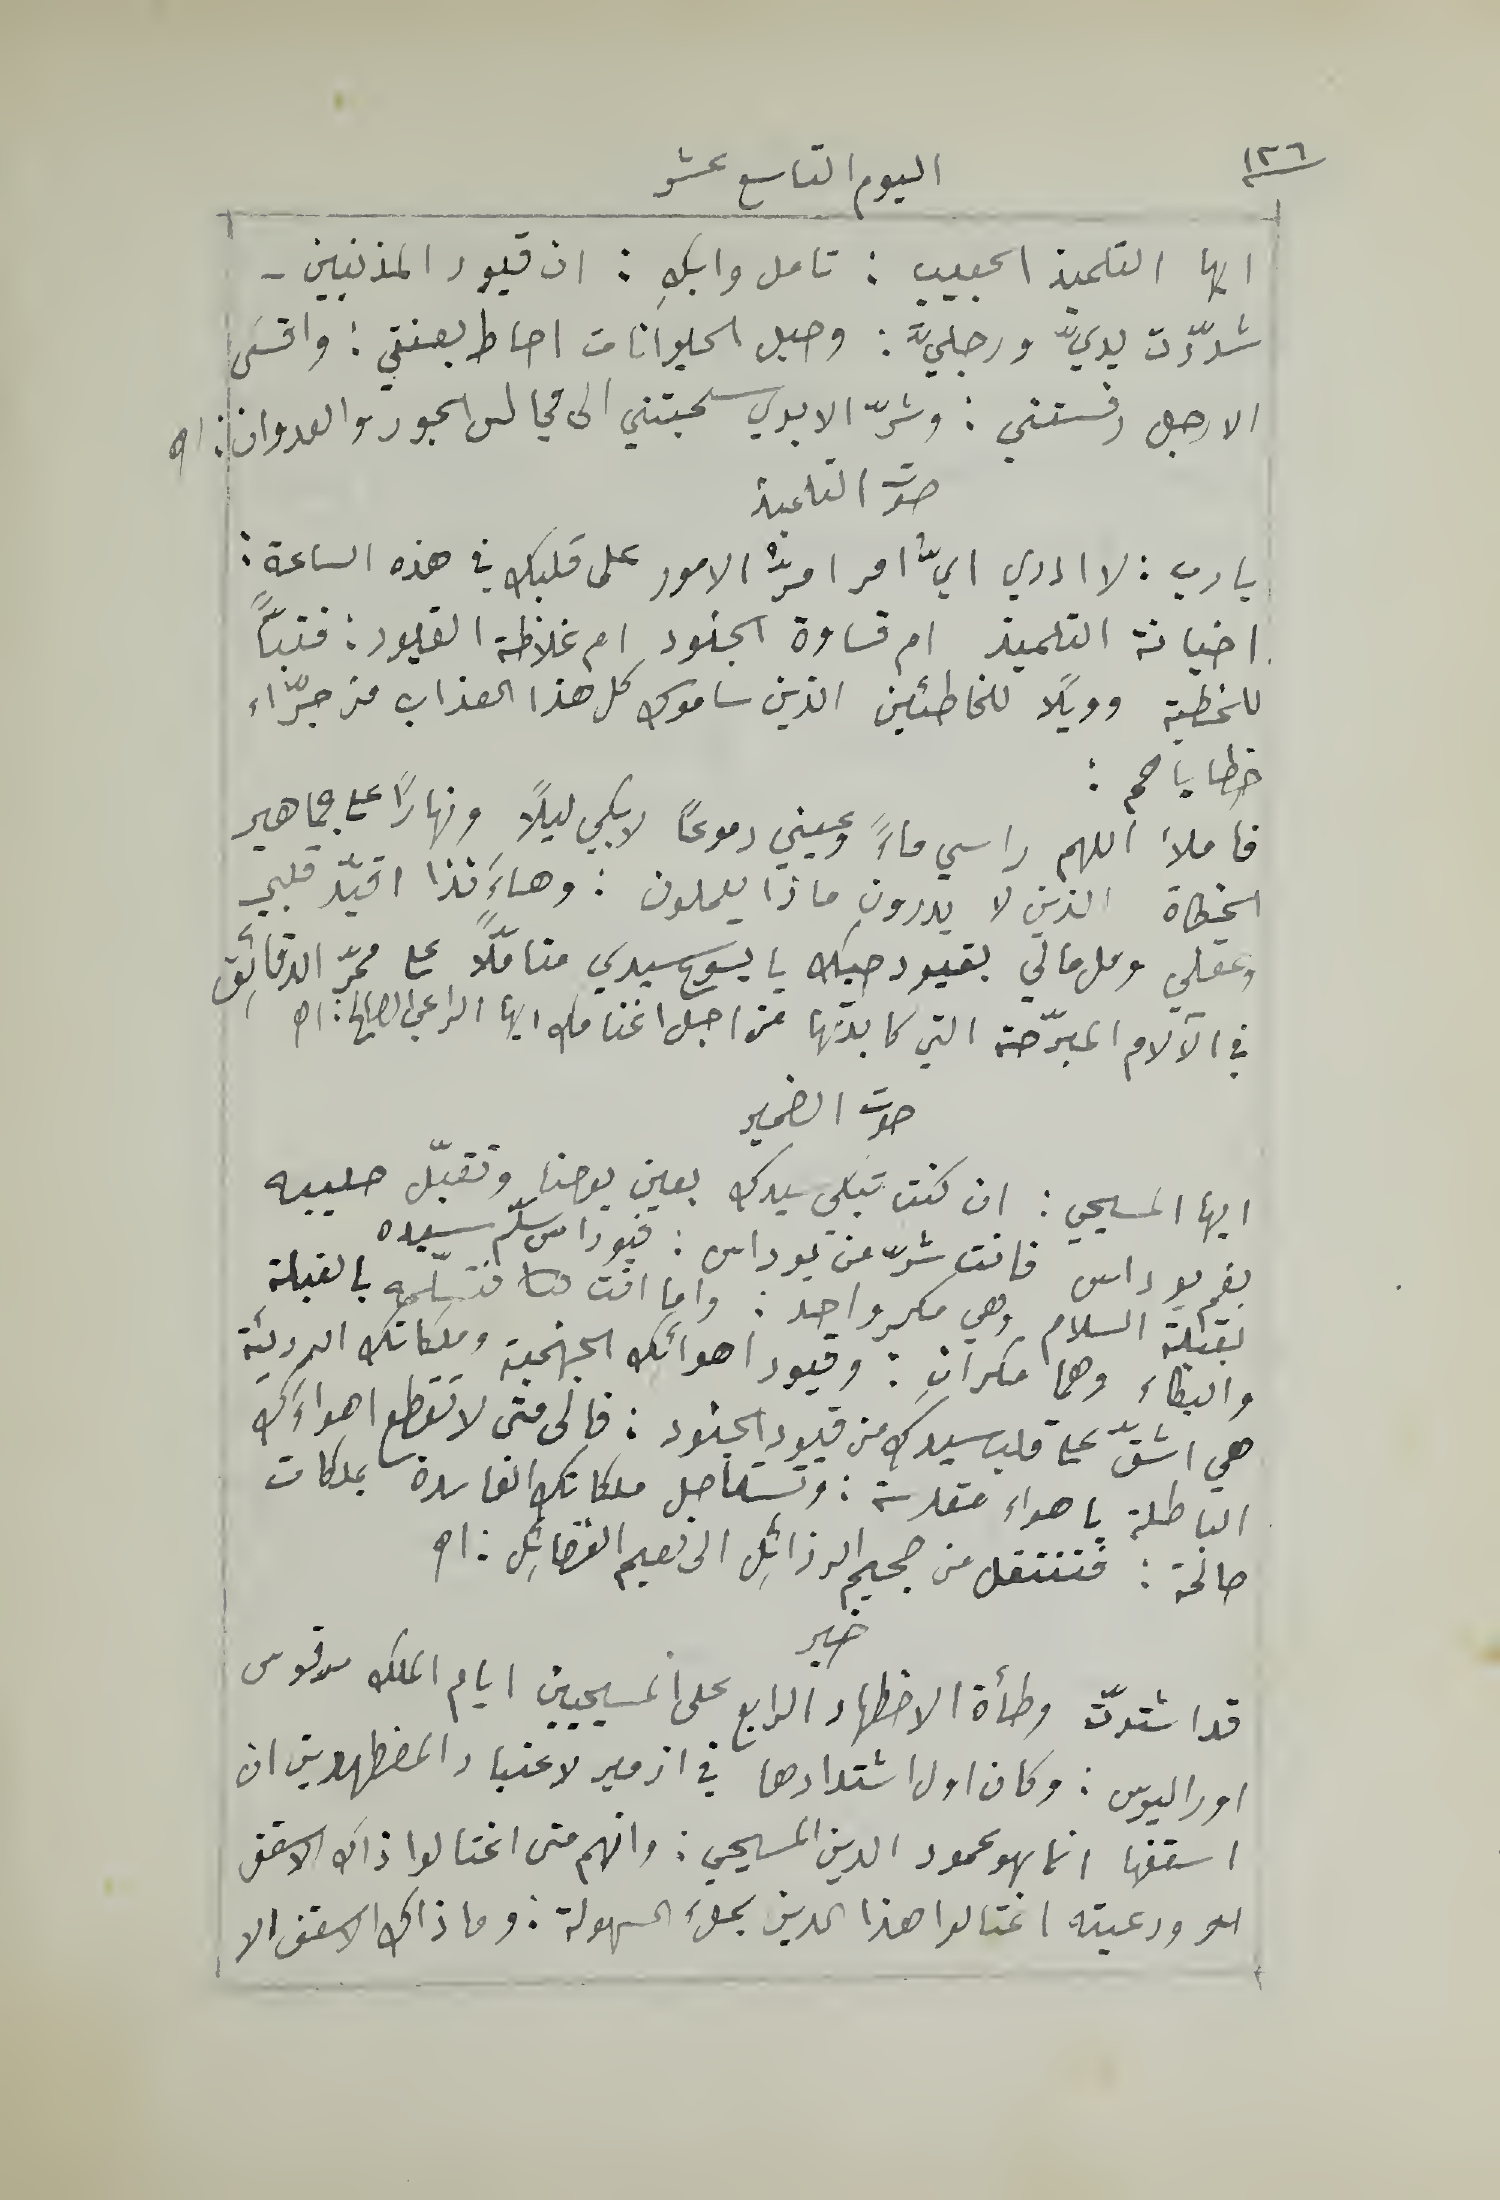 ١٢٦
اليوم التاسع عشر
ايها التلميذ الحبيب : تامل وابكِ : ان قيود المذنبين -
شدّدت يديّ ورجليّ : وحبل الحيوانات احاط بعنقي : واقسَى
الارجل رفستني : وشرّ الايدي سحبتني الى مجالس الجور والعدوان : اه
صوت التلميذ
يا رب : لا ادري ايّ امر امرّ الامور على قلبك في هذه الساعة :
اخيانة التلميذ ام قساوة الجنود ام غلاظة القيود : فتبّاً
للخطية وويلًا للخاطئين الذين ساموك كل هذا العذاب من جرّاء
خطاياهم :
فاملأ اللهم راسي ماءً وعيني دموعًا لابكي ليلًا ونهارًا على جماهير
الخطاة الذين لا يدرون ماذا يعملون : وهاءَنذا اقيّد قلبي
وعقلي وكل مالي بقيود حبك يا يسوع سيدي متاملًا على ممرّ الدقائق
في الآلام المبرّحة التي كابدتها من اجل اغنامك ايها الراعي الصالح : اه
صوت الضمير
ايها المسيحي : ان كنت تبكي سيدك بعين يوحنا وتقبّل صليبه
بفم يوداس فانت شرّ من يوداس : فيوداس سلّم سيده
بقبلة السلام وهي مكر واحد : واما انت فتسلّمه بالقبلة
والبكاء وهما مكرانِ : وقيود اهوائك الجهنمية وملكاتك الرديئة
هي اشقّ على قلب سيدك من قيود الجنود : فالى متى لا تقطع اهواءَك
الباطلة باهواء مقدسة : وتستاصل ملكاتك الفاسدة بملكات
صالحة : فتنتقل من جحيم الرذائل الى نعيم الفضائل : اه
خبر
قد اشتدّت وطأة الاضطهاد الرابع على المسيحيين ايام الملك مرقوس
اوراليوس : وكان اول اشتدادها في ازمير لاعتبار المضطهدين ان
اسقفها انما هو عمود الدين المسيحي : وانهم متى اغتالوا ذاك الاسقف
هو ورعيته اغتالوا هذا الدين بملءِ السهولة : وما ذاك الاسقف الا